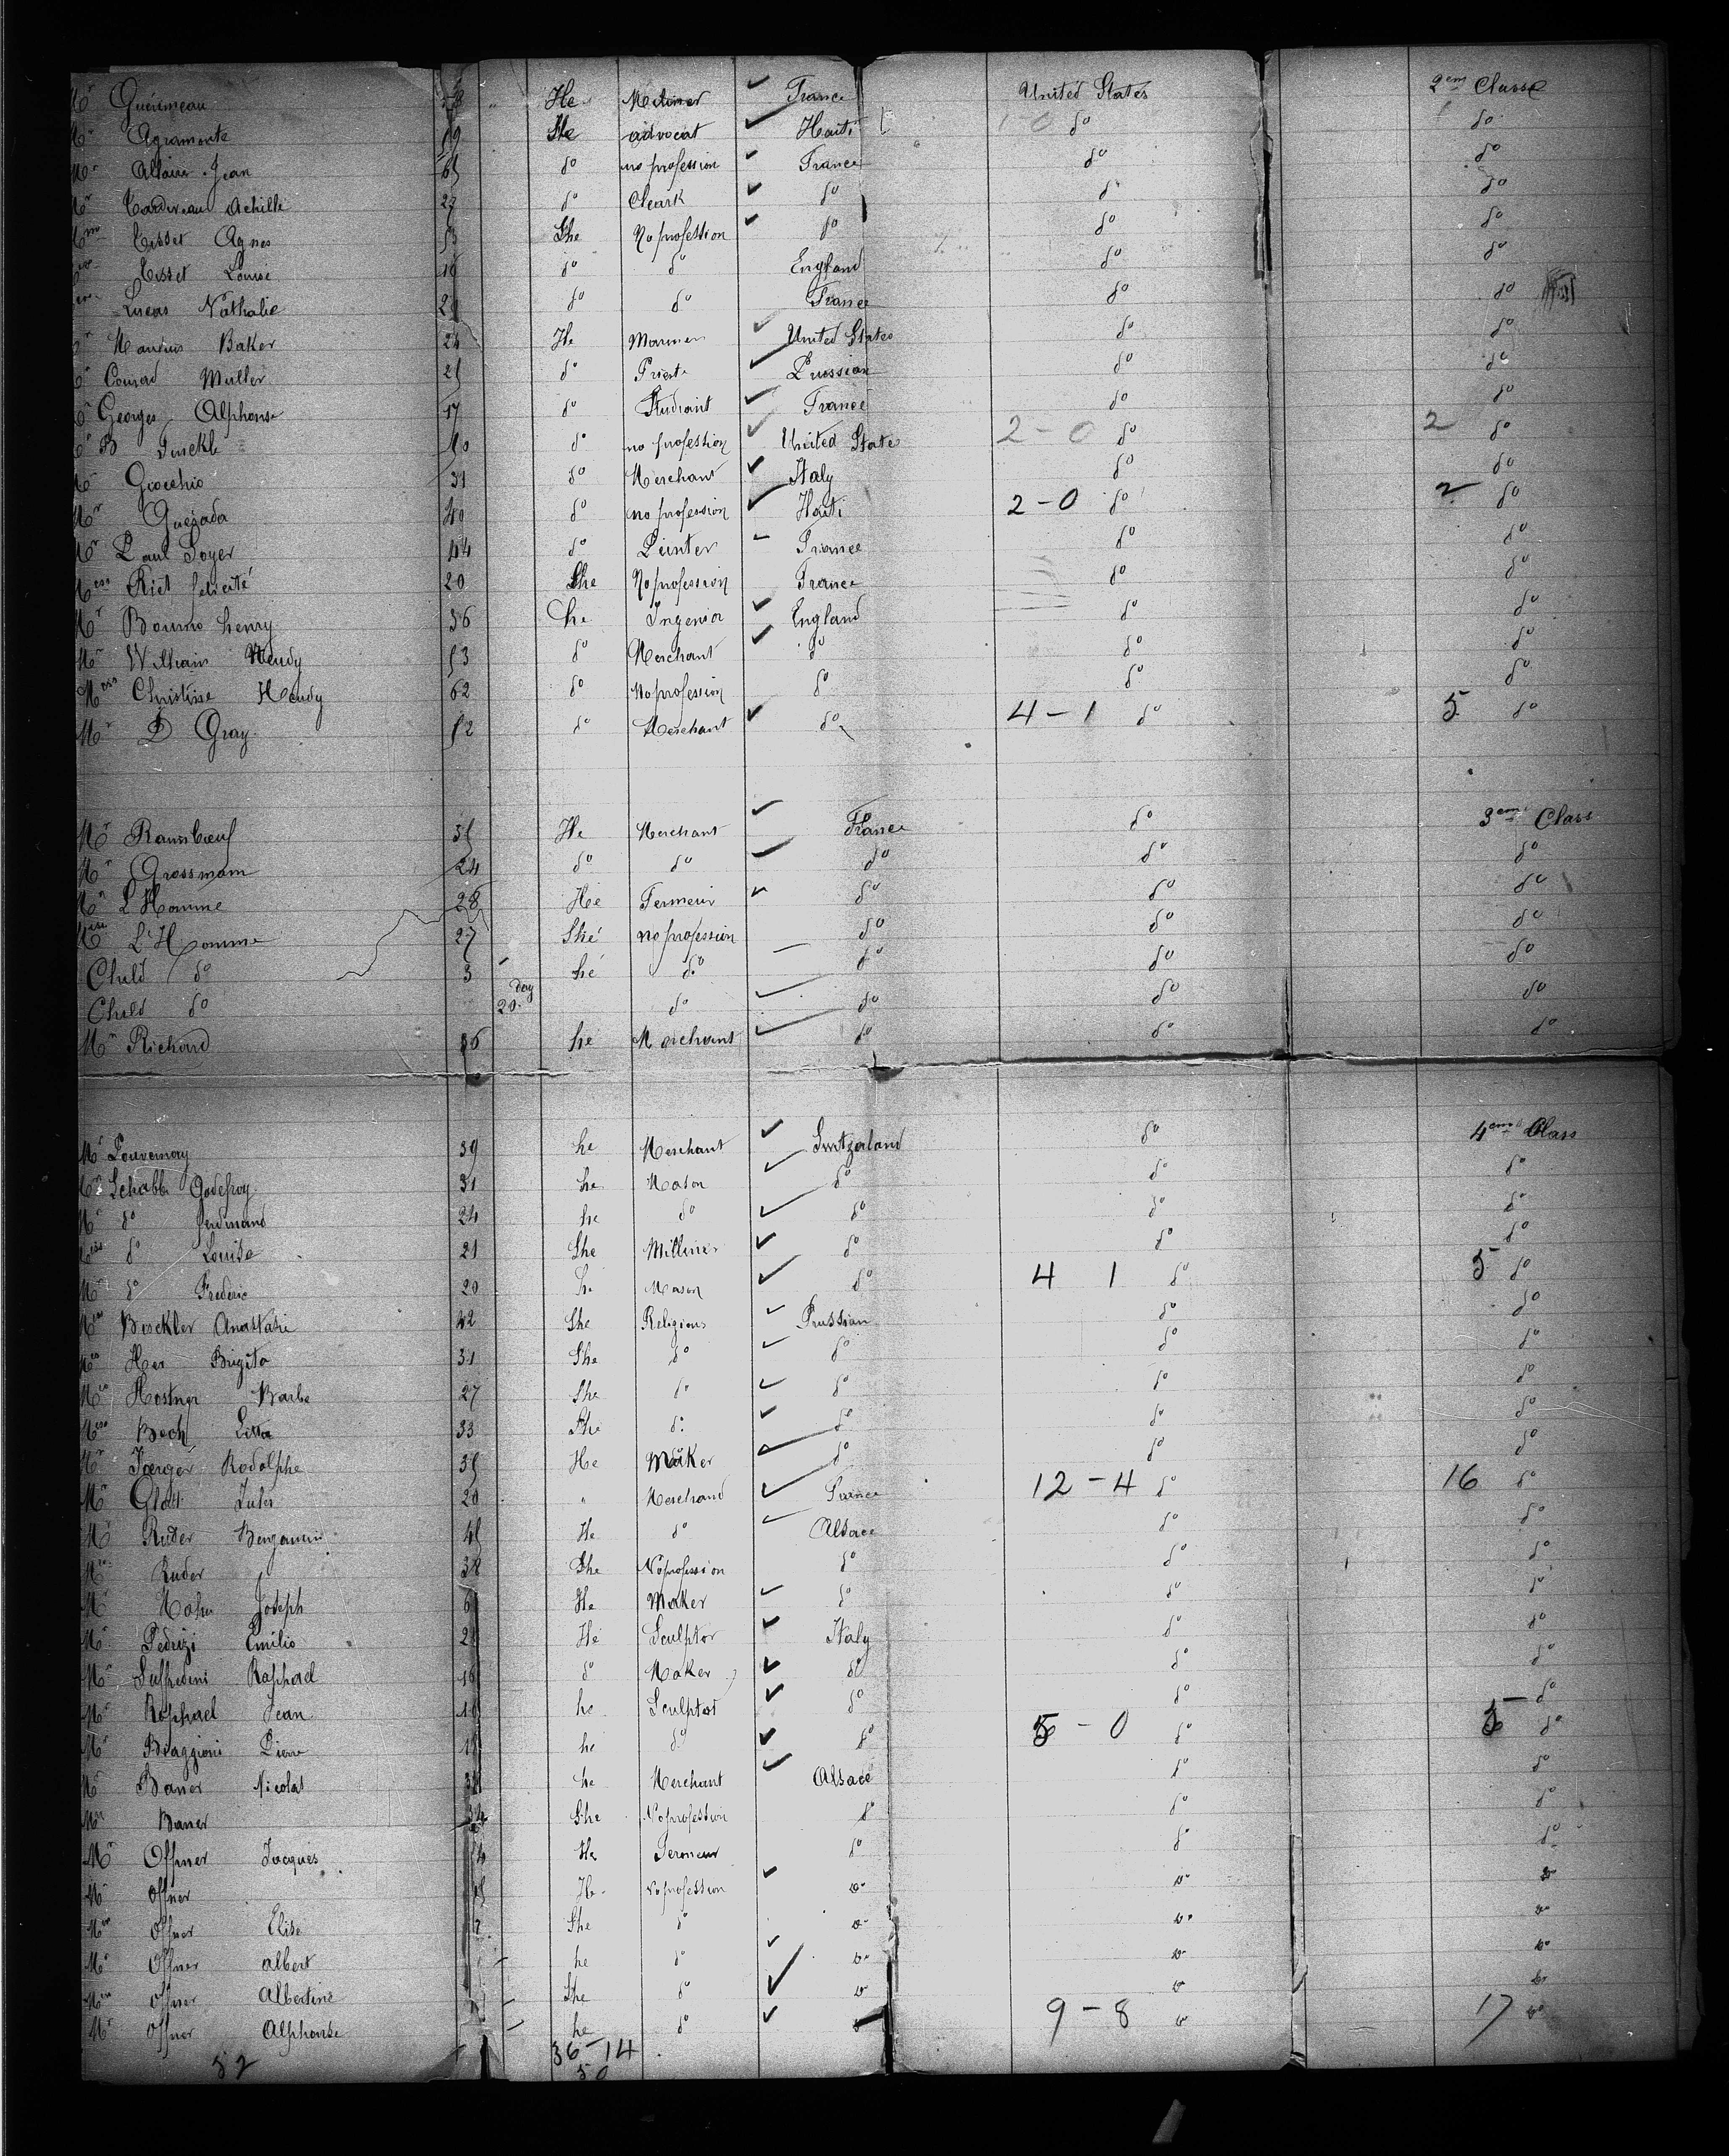 Mr Guerineau 38 " He France United States 2em Classe
Mr Agramonte 19 He advocat Haiti 1-0 do do
Mr Allaire Jean 65 do no profession France do do
Mr Achille 27 do Cleark do do do
Tisset Agnes 53 She No profession do do do
Tisset Louise 16 do do England do do
Lucas Nathalie 29 do do France do do
Baker 24 He Mariner United States do do
Conrad Muller 25 do Priest Prussian do do
Georges Alphonse 17 do Studiant France do do
B 40 do no profession United State 2-0 do 2 do
Mr Giocchio 31 do Merchant Italy do do
Mr Quezada 40 do no profession Haiti 2-0 do 2 do
Mr Paul Soyer 44 do Peinter France do do
Mess Riet felicité 20 She No profession France do do
Mr Bourne henry 36 he Ingenior England do do
Mr William Hendy 53 do Merchant do do do
Mess Christine Hendy 62 do No profession do do do
Mr D Gray 52 do Merchant do 4-1 do 5 do
Mr Ramsboeuf 35 He Merchant France do 3em Class
Mr Grossmam 24 do do do do do
Mr L'Homme 28 He Fermeur do do do
L'Homme 27 She no profession do do do
Child do 3 he do do do do
Child do 20 day do do do do
Mr Richard 36 he Merchant do do do
Mr Louvernay 39 he Merchant Switzerland do 4em Class
Mr Schabb Godefroy 31 he Mason do do do
Mr do ferdinand 24 he do do do do
do Louise 21 She Milliner do do do
Mr do Frederic 20 he Mason do 4 1 do 5 do
Boeckler Anastasie 42 She Religious Prussian do do
Her Brigita 31 She do do do do
Hostner Barbe 27 She do do do do
Mess Boch 33 She do do do do
Mr Joerger Rodolphe 35 He Maker do do do
Mr Jules 20 " Merchand France 12-4 do 16 do
Mr Ruder Benjamin 45 He do Alsace do do
Ruder 38 She No profession do do do
Mr Hohn Joseph 6 He Maker do do do
Mr Pedrizi Emilio 28 He Sculptor Italy do do
Mr Raphael 16 do Maker do do do
Mr Raphael Jean 19 he Sculptor do do do
Mr Biaggioni Pierre 18 he do do 5-0 do 5 do
Mr Baner Nicolas he Merchant Alsace do do
Baner 34 She No profession do do do
Mr Offner Jacques He do do do
Mr Offner He No profession do do do
Offner Elise She do do do do
Mr Offner albert he do do do do
Offner Albertine She do do do do
Mr Offner Alphonse he do do 9-8 do 17 do
52 36-14
50